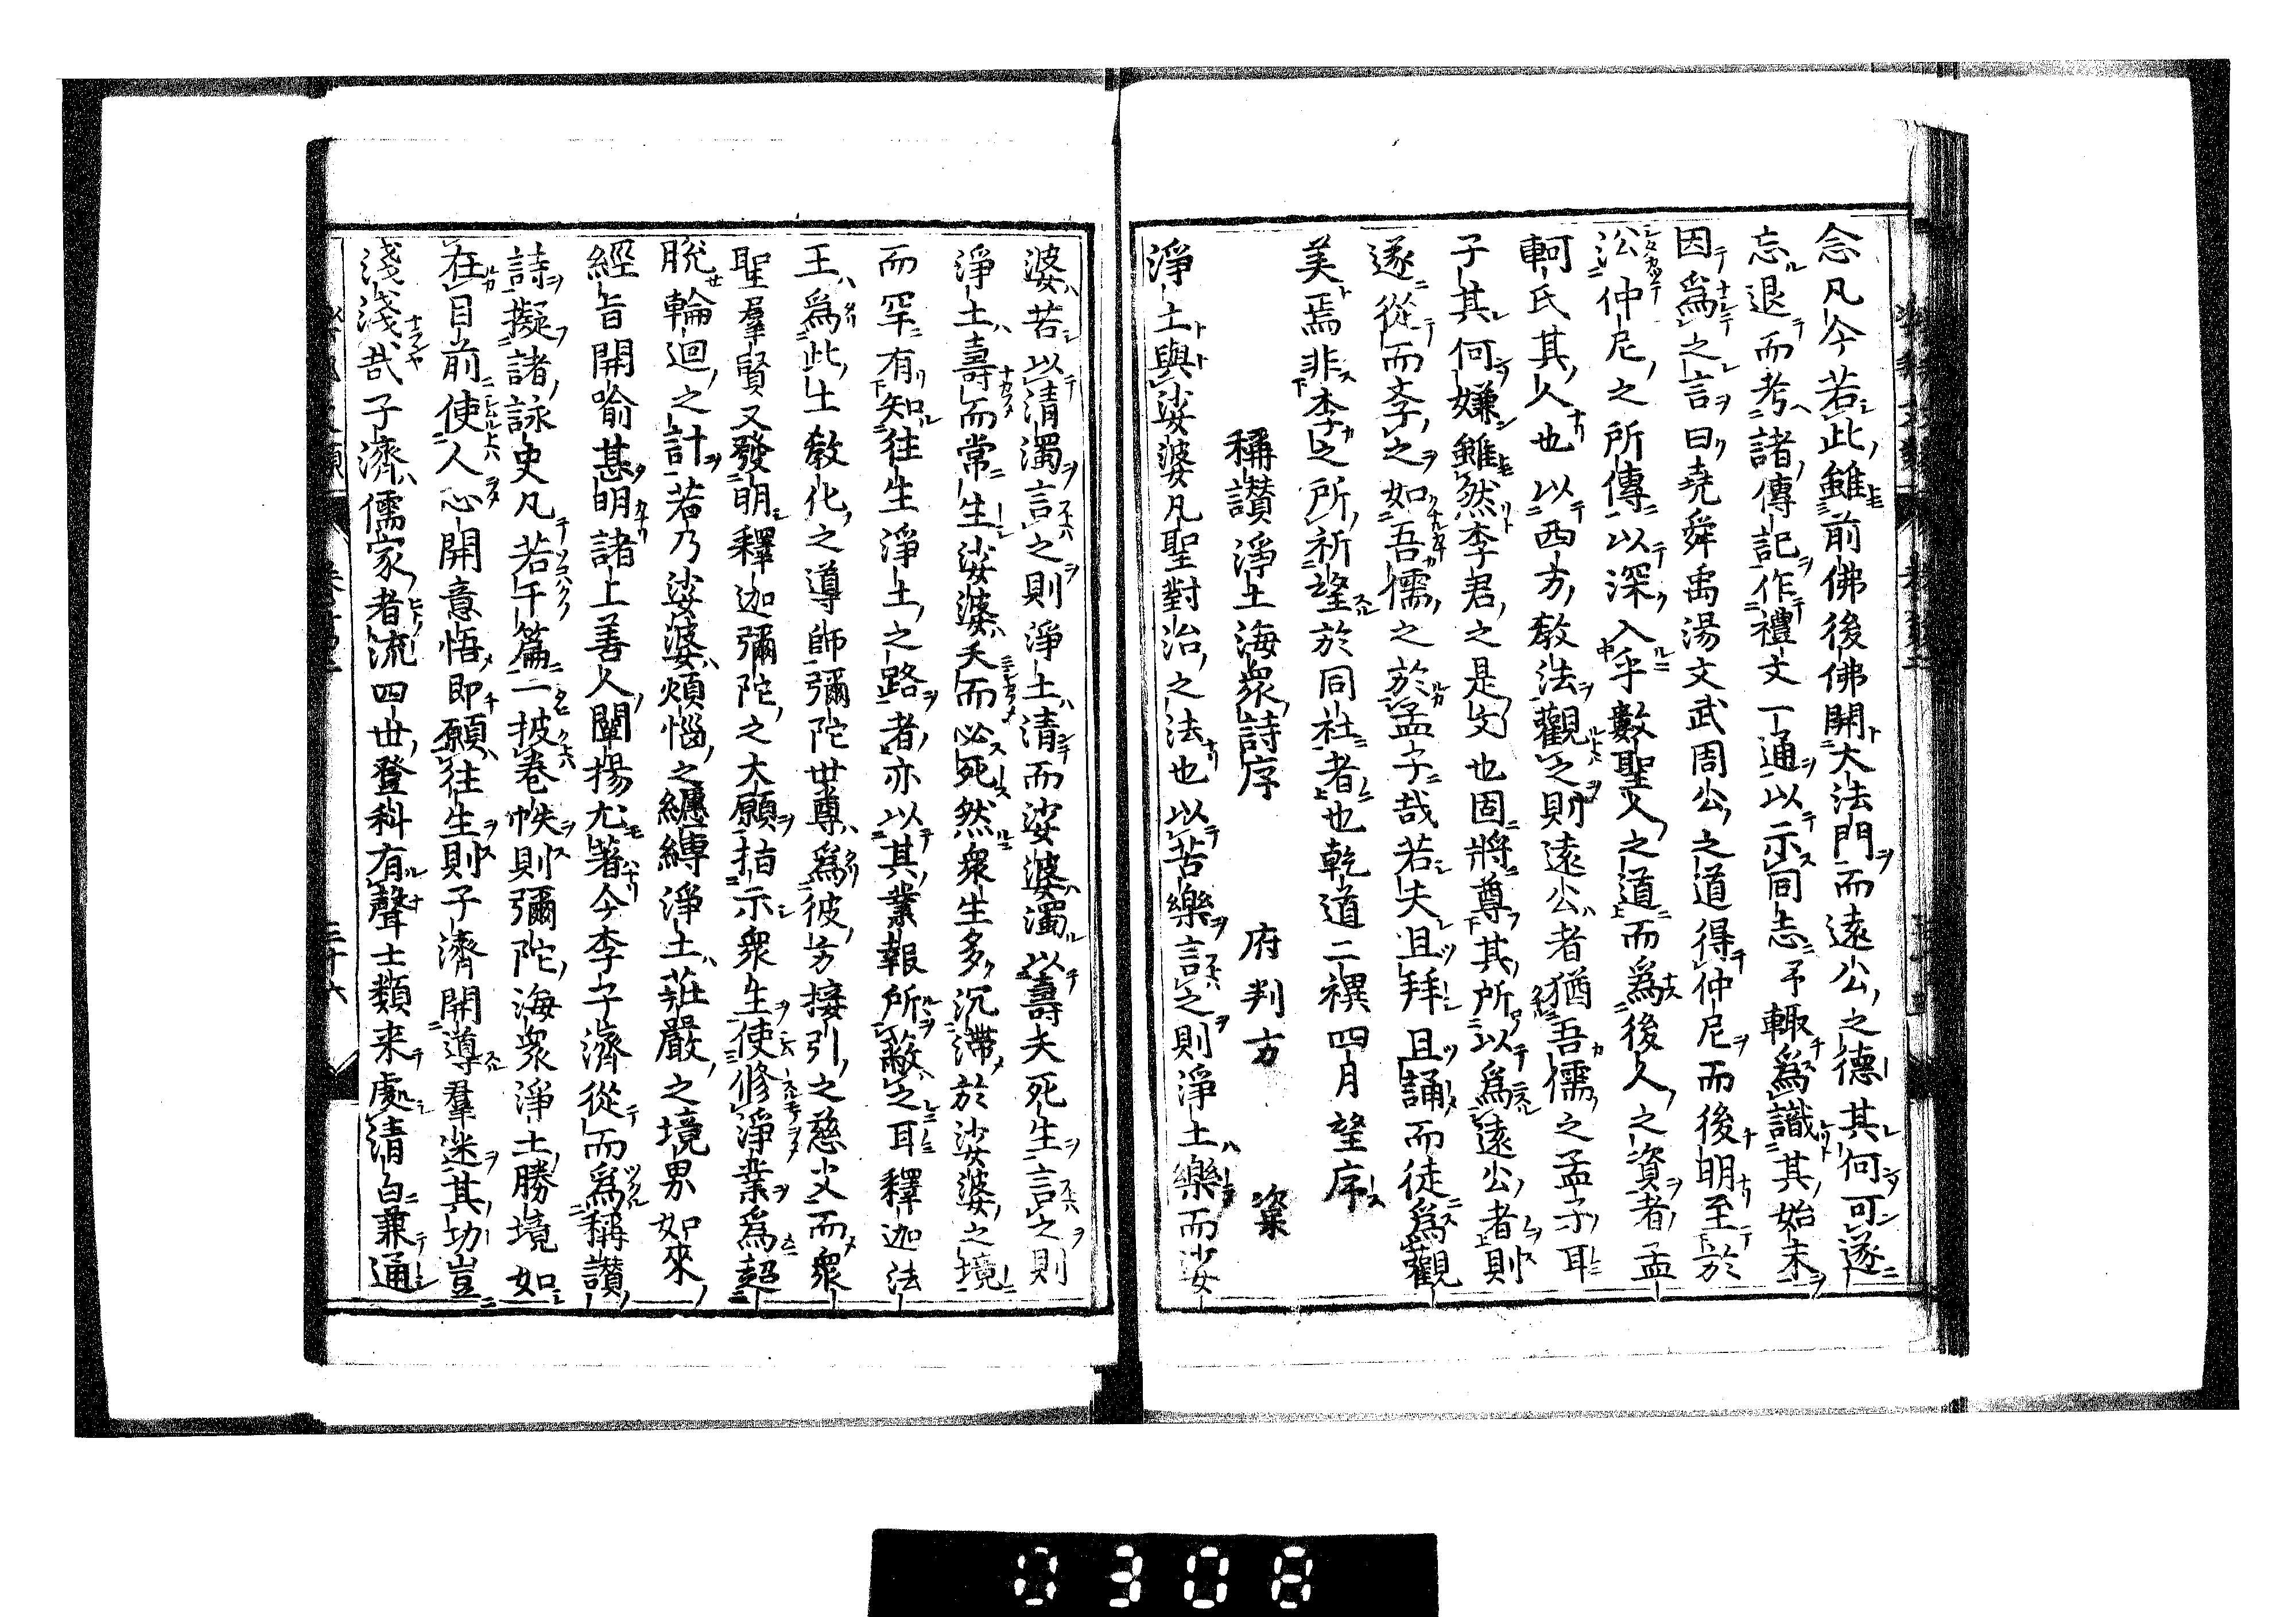 念凡今若此雖前佛後佛開大法門而遠公之德其何可遂
忘退而考諸傳記作禮文一通以示同志予輙爲識其始末
因爲之言曰堯舜禹湯文武周公之道得仲尼而後明至於
㳂仲尼之所傳以深入乎數聖人之道而爲後人之資者孟
軻氏其人也以西方教法觀之則遠公者猶吾儒之孟子耳
子其何嫌雖然李君之是文也固將尊其所以爲遠公者則
遂從而李之如吾儒之於孟子哉若夫且拜且誦而徒爲觀
美焉非李之所祈望於同社者也乾道二禩四月望序
稱讚淨土海衆詩序　府判方　滋
淨土與娑婆凡聖對治之法也以苦樂言之則淨土樂而娑
婆苦以清濁言之則淨土清而娑婆濁以壽夭死生言之則
淨土壽而常生娑婆夭而必死然衆生多沉滯於娑婆之境
而罕有知往生淨土之路者亦以其業報所蔽之耳釋迦法
王爲此土教化之導師彌陀世尊爲彼方接引之慈父而衆
聖羣賢又發明釋迦彌陀之大願指示衆生使修淨業爲超
脫輪迴之計若乃娑婆煩惱之纏縛淨土莊嚴之境界如來
經旨開喻甚明諸上善人闡揚尤著今李子濟從而爲稱讚
詩擬諸詠史凡若干篇一披卷帙則彌陀海衆淨土勝境如
在目前使人心開意悟即願往生則子濟開導羣迷其功豈
淺淺哉子濟儒家者流四世登科有聲士類来處清白兼通
三十六
0308